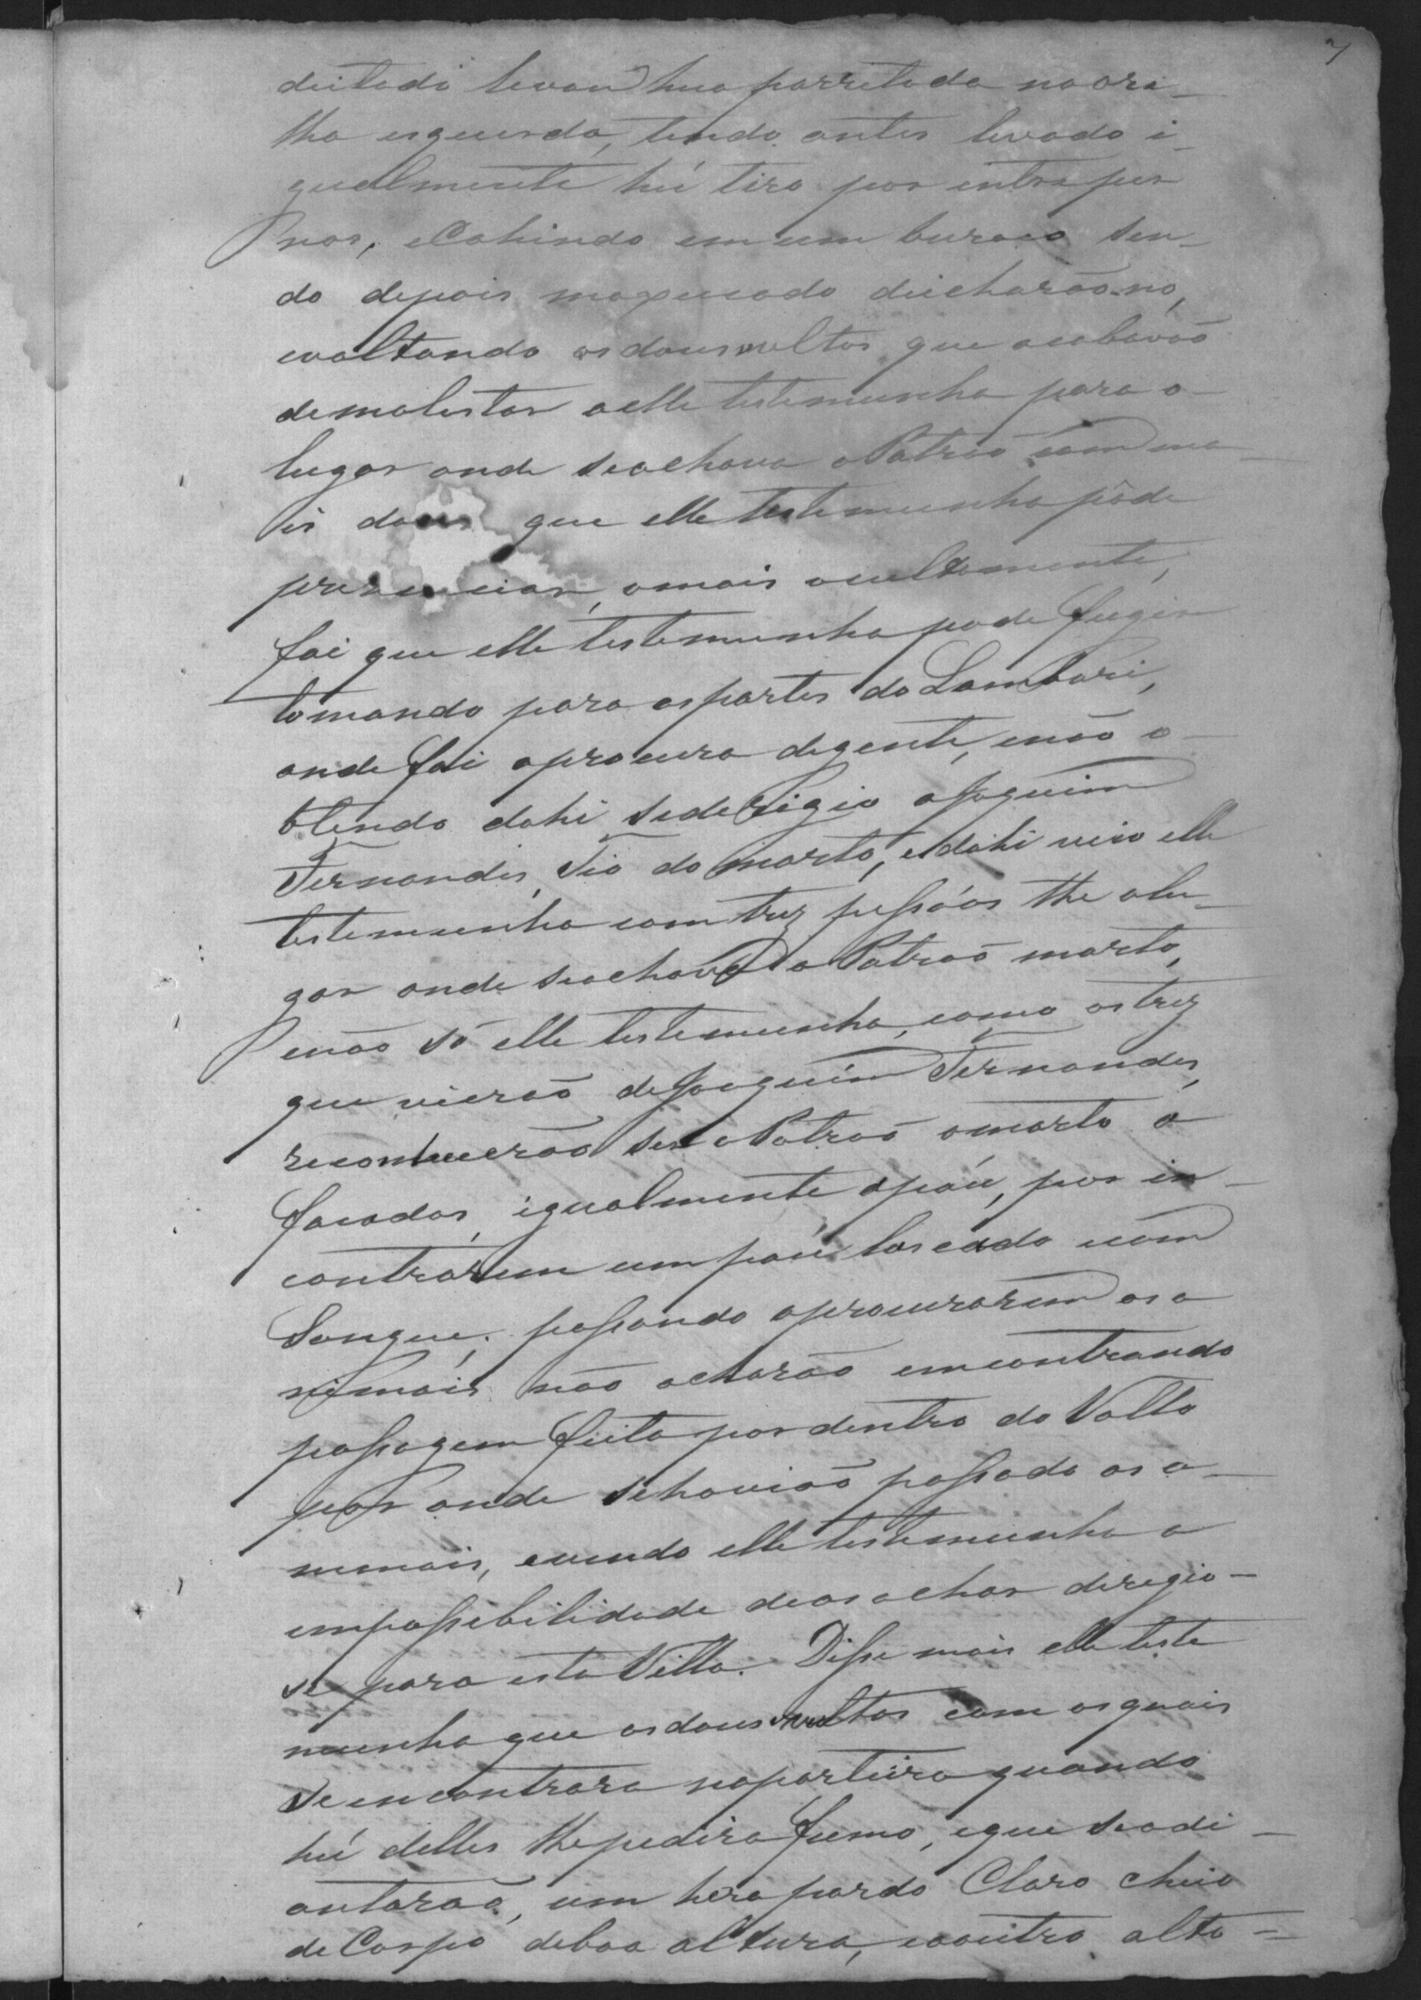 7
deitado levou hua porretada na ore-
lha esquerda, tendo antes levado i-
gualmente hũ tiro por entre per
nas, e Cahindo em um buraco sen-
do depois maxucado deicharão-no,
evoltando os dous vultos que acabavão
demolestar aelle testemunha para o
lugar onde seachava o Patrão com ma-
is dous que elle testemunha pôde
prezenciar, omais ocultamente,
foi que elle testemunha pode fugir
tomando para aspartes do Lambari,
onde foi aprocura degente, enão o-
btendo dahi sederigio a Joaquim
Fernandes, Tio do morto, e dahi veio elle
testemunha com trez pessôas the olu-
gar onde seachava o Patrão morto,
enão só elle testemunha, como os trez
que vierão de Joaquim Fernandes,
reconhecerão ser o Patrão omorto a
facadas, igualmente apáu, por in-
contrarem um páu lascado com
Sangue; passando aprocurarem os a
nimais não acharão emcontrando
passagem feita por dentro do Vallo
por onde sehavião passado os a-
nimais, evendo elle testemunha a
impossibilidade deos achar deregio-
se para esta Villa. Disse mais elle teste
munha que os dous vultos com os quais
se encontrara naporteira quando
hũ delles lhe pedira fumo, eque seadi-
antarão, um hera pardo Claro cheio
de Corpo deboa altura, eooutro alto-